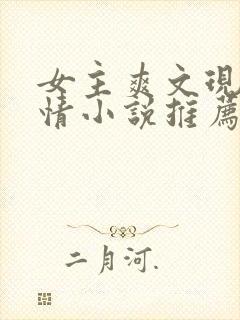 女主爽文現
情小說推薦
二月河.